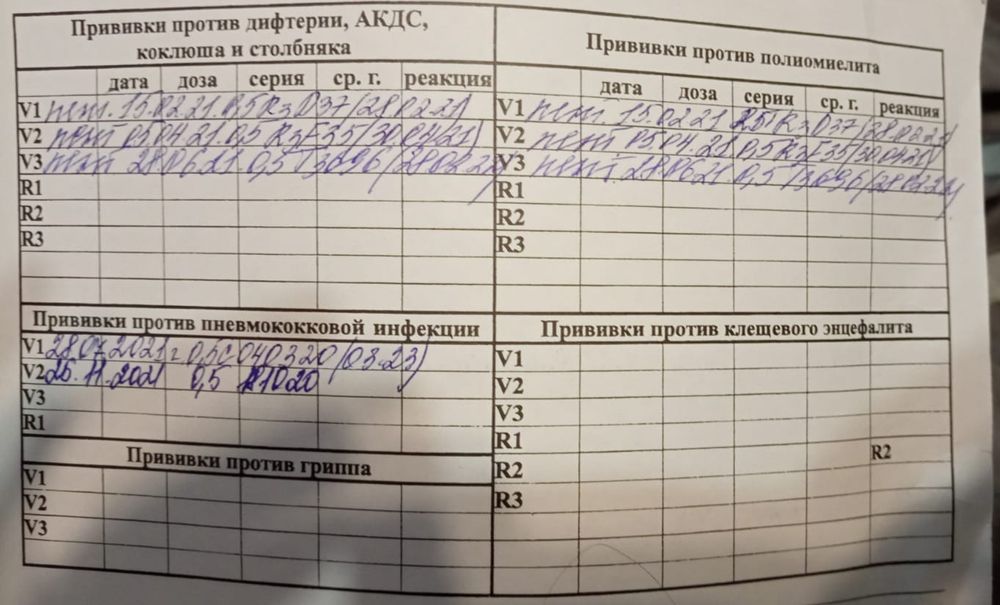 Прививки против дифтерии, АКДС,
коклюша и столбняка
дата доза серия ср. г. реакция
V1 пент. 15.02.21 0,5 R3D37 (28.02.21)
V2 пент 05.04.21 0,5 R3F35 (30.04.21)
V3 пент 28.06.21 0,5 T3696 (28.02.22)
R1
R2
R3
Прививки против полиомиелита
дата доза серия ср. г. реакция
V1 пент. 15.02.21 0,5 R3D37 (28.02.21)
V2 пент 05.04.21 0,5 R3F35 (30.04.21)
V3 пент. 28.06.21 0,5 T3696 (28.02.22)
R1
R2
R3
Прививки против пневмококковой инфекции
V1 28.07.2021 г 0,5 С040320 (03.23)
V2 26.11.2021 0,5 1020
V3
R1
Прививки против клещевого энцефалита
V1
V2
V3
R1
R2 R2
R3
Прививки против гриппа
V1
V2
V3